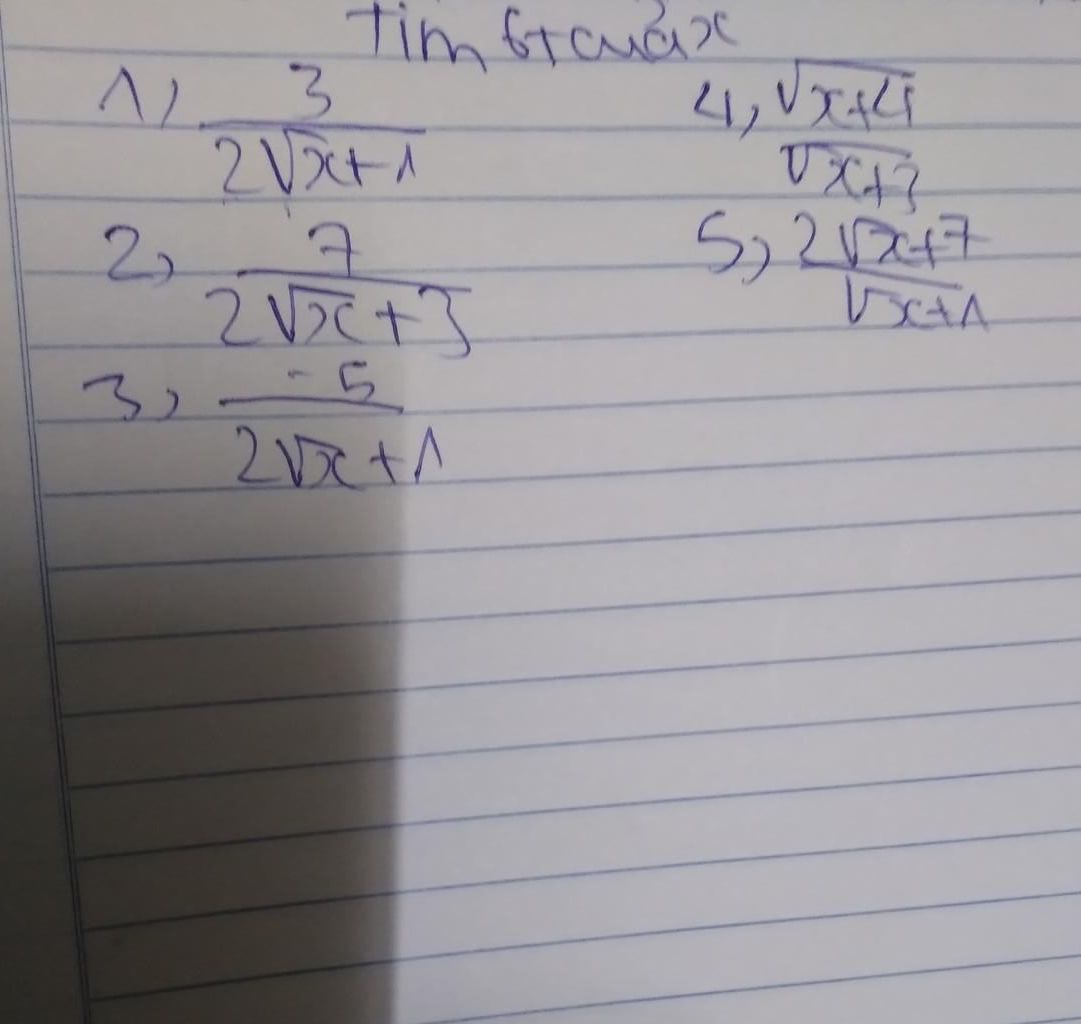 Tìm Gt của x
1, 3/(2√x+1)
2, 7/(2√x+3)
3, -5/(2√x+1)
4, √x+4/√x+3
5, (2√x+7)/(√x+1)